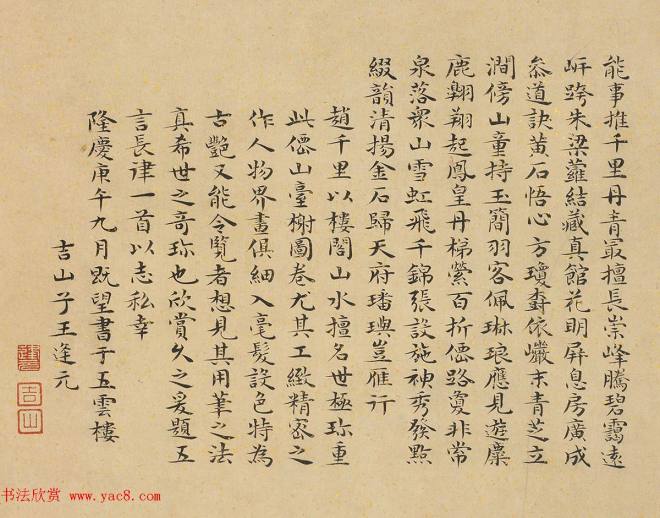 能事推千里丹青冣擅長崇峰騰碧靄遠
岍跨朱梁蘿結藏真館花明屏息房廣成
叅道訣黃石悟心方瓊依巖末青芝立
澗傍山童持玉簡羽客佩琳琅應見遊麋
鹿翱翔起鳳皇丹梯縈百折僊路敻非常
泉落衆山雪虹飛千錦張設施神秀發點
綴韻清揚金石歸天府璠璵豈雁行
趙千里以樓閣山水擅名世極珎重
此僊山臺榭圖卷尤其工緻精密之
作人物界畫俱細入毫髮設色特為
古艷又能令覽者想見其用筆之法
真希世之奇珎也欣賞久之爰題五
言長律一首以志私幸
隆慶庚午九月既望書于五雲樓
吉山子王逢元
吉山
书法欣赏 www.yac8.com